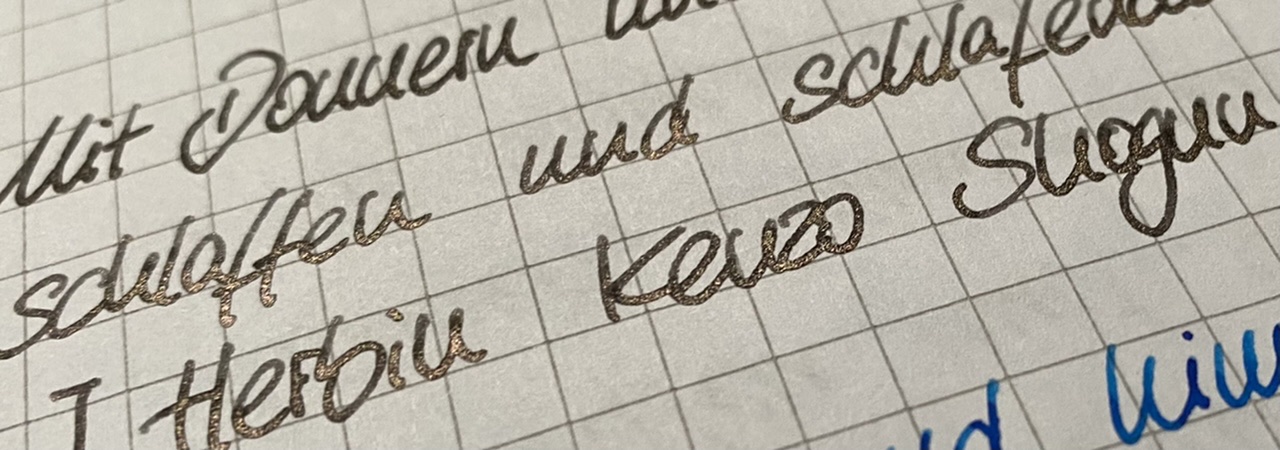 Mit Donnern
schlaffen und schlafend
J Herbin Kenzo Shogun